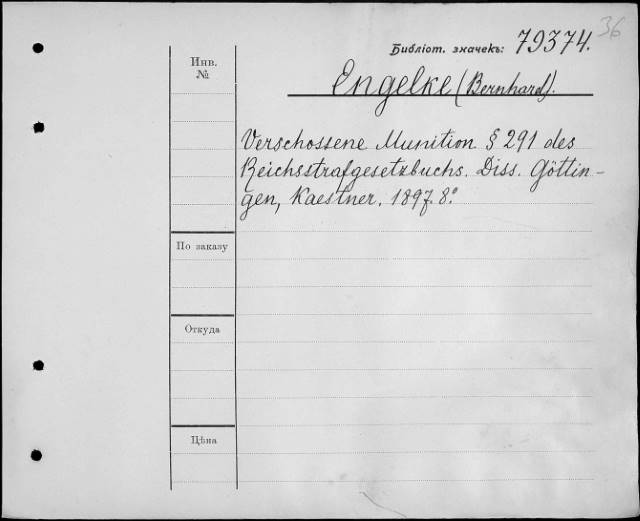 36
Библіот. значекъ: 79374.
Инв.
№
Engelke (Bernhard).
Verschossene Munition § 291 des
Reichsstrafgesetzbuchs. Diss. Göttin-
gen, Kaestner. 1897. 8.°
По заказу
Откуда
Цѣна